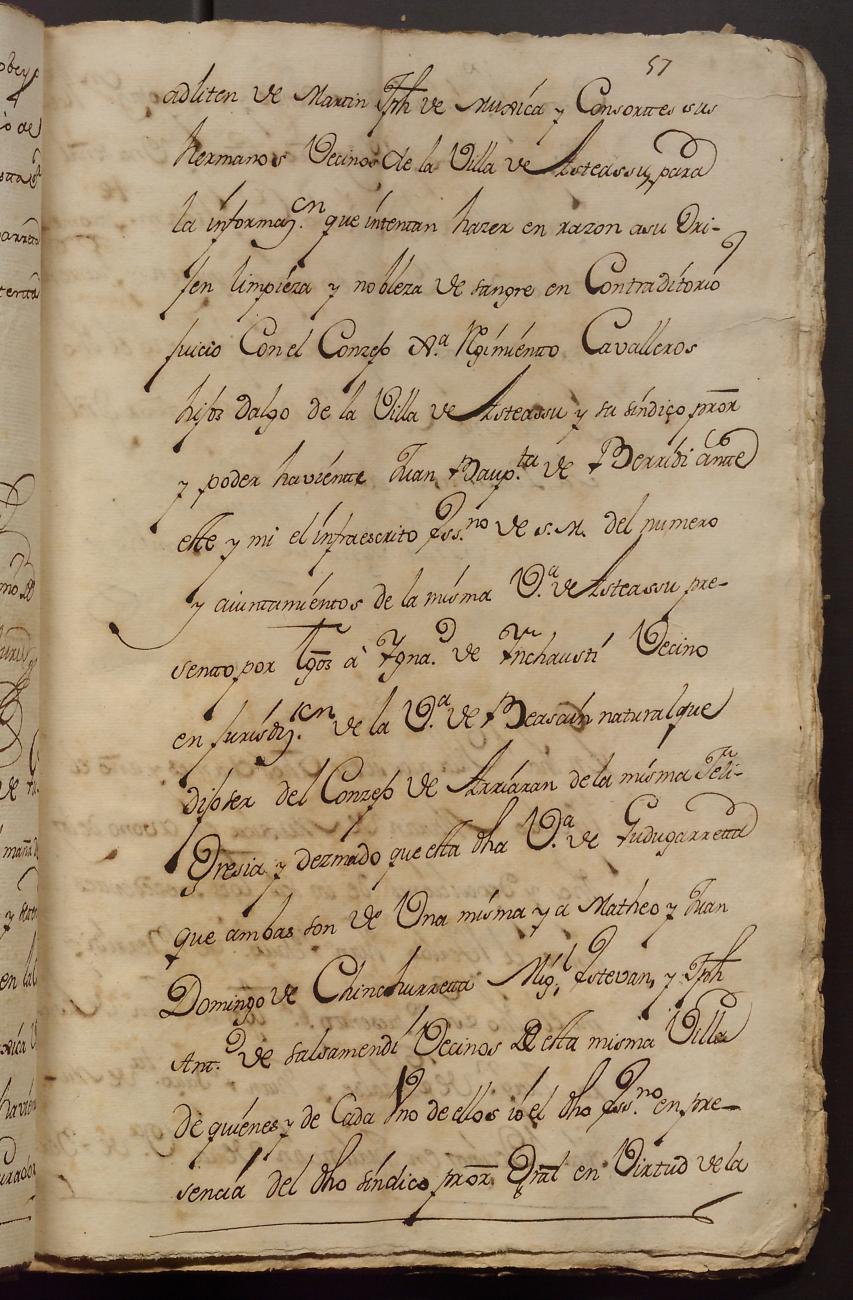 57
adliten de Martin Jph de Muxica y Consortes sus
hermanos Vecinos de la Villa de Asteassu, para
la informaz.on que intentan hazer en razon a su Ori-
jen limpieza y nobleza de sangre en Contraditorio
juicio Con el Conzejo Regimiento Cavalleros
hijos dalgo de la Villa de Asteassu y su sindico pror
y poder haviente Juan Baup.ta de Berridi ante
este y mi el infraescrito Ess.no de S.M. del numero
y aiuntamientos de la misma V.a de Asteassu pre-
sento por tgos à Ygna.o de Ynchausti Vecino
en jurisdiz.on de la V.a de Beasain natural que
dijo ser del Conzejo de Arriaran de la misma Feli-
Gresia y dezmado que esta dha V.a de Gudugarreta
que ambas son de Una misma y a Matheo y Juan
Domingo de Chinchurreta Mig.l Estevan, y Jph
Ant.o de Salsamendi Vecinos de esta misma Villa
de quienes y de Cada Vno de ellos io el dho Ess.no en pre-
sencia del dho sindico pror Gral en Virtud de la